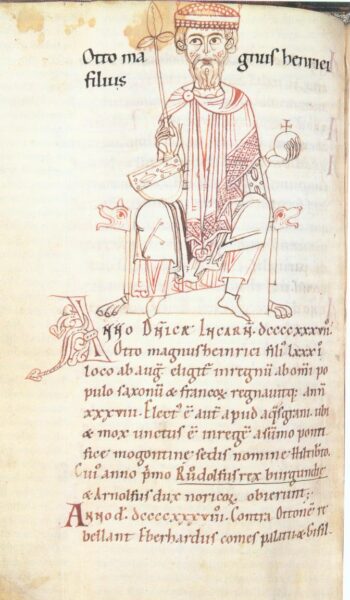 Otto ma gnus henrici
filius
Anno Dn̄icę Incarn̄. dccccxxxvii.
Otto magnus heinrici fili' lxxx i
loco ab aug̅ eligit̅ inregnū abom̄i po
pulo saxonū & francoꝝ regnauitq; ann̄
xxxviii. Elect' ē aut̄ apud aq̄sgrani. ubi
& mox unctus ē inregē asūmo ponti
fice mogontinę sedis nomine Hiltib̄to.
Cui' anno p̄mo Růdolfus rex burgundię
& Arnolfus dux noricoꝝ obierunt;
Anno d̄. dccccxxxviii. Contra Ottonē re
bellant Eberhardus comes palatii & Gisil-